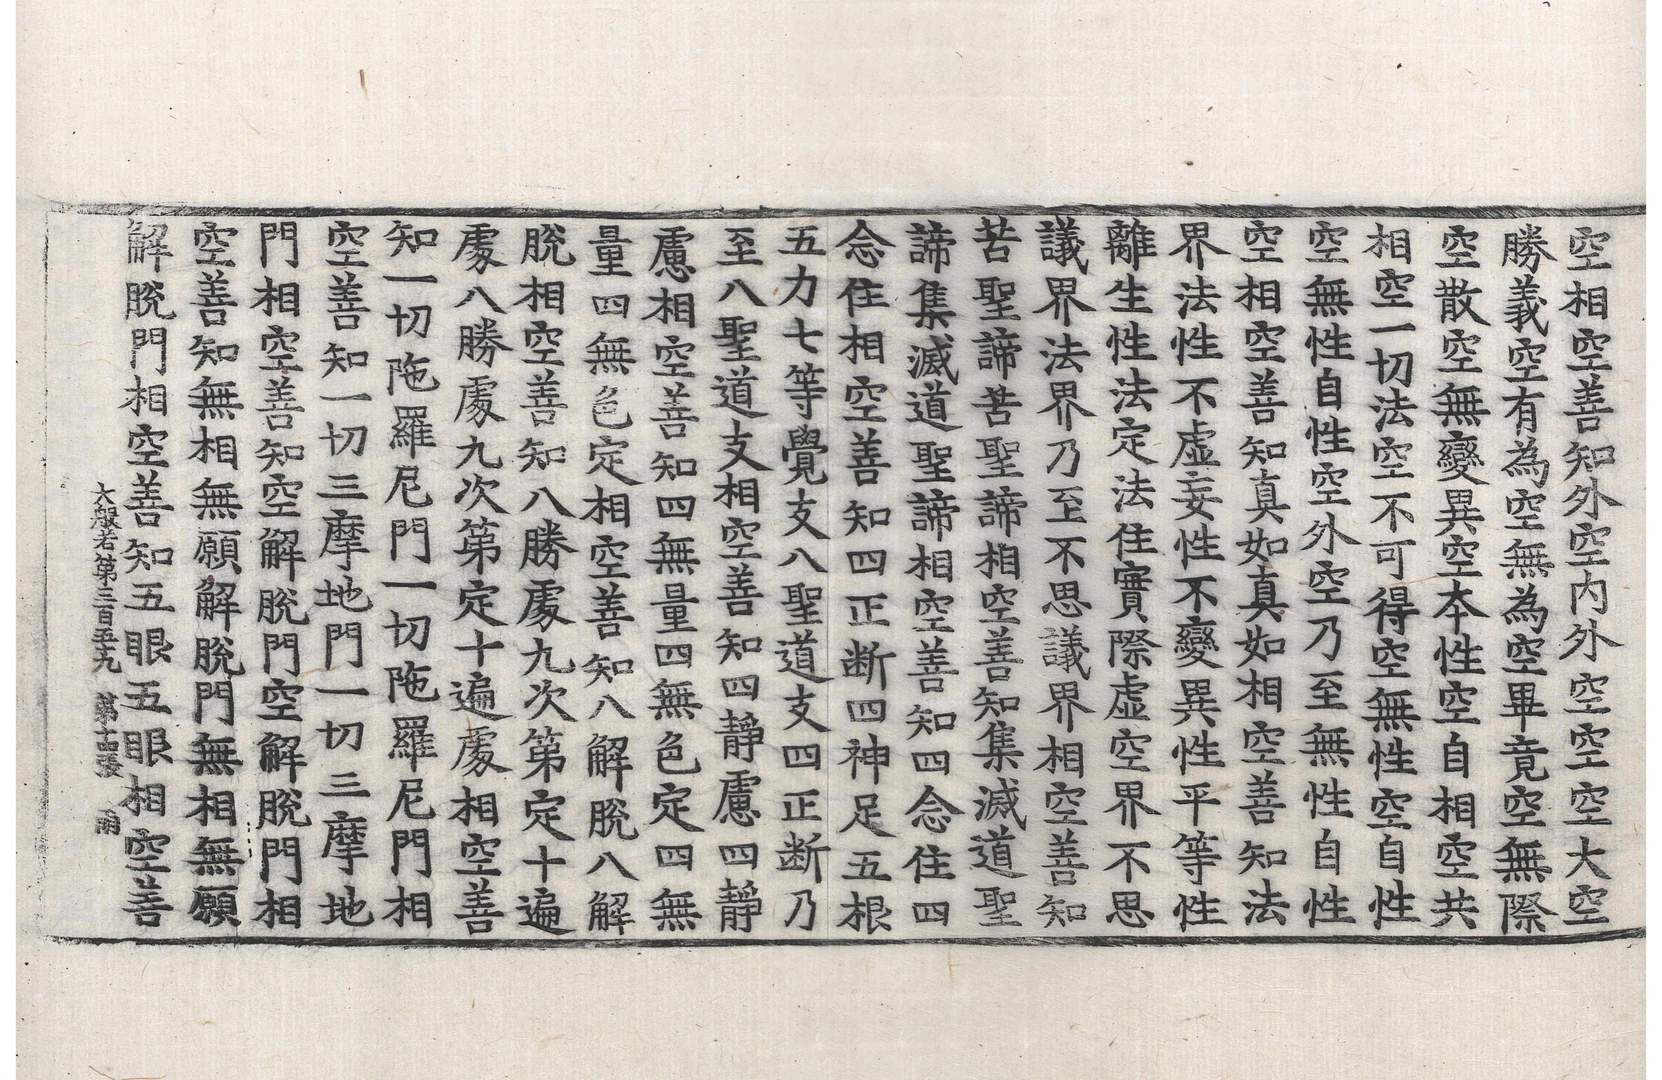 空相空善知外空內外空空空大空
勝義空有為空無為空畢竟空無際
空散空無變異空本性空自相空共
相空一切法空不可得空無性空自性
空無性自性空外空乃至無性自性
空相空善知真如真如相空善知法
界法性不虛妄性不變異性平等性
離生性法定法住實際虛空界不思
議界法界乃至不思議界相空善知
苦聖諦苦聖諦相空善知集滅道聖
諦集滅道聖諦相空善知四念住四
念住相空善知四正斷四神足五根
五力七等覺支八聖道支四正斷乃
至八聖道支相空善知四靜慮四靜
慮相空善知四無量四無色定四無
量四無色定相空善知八解脫八解
脫相空善知八勝處九次第定十遍
處八勝處九次第定十遍處相空善
知一切陁羅尼門一切陁羅尼門相
空善知一切三摩地門一切三摩地
門相空善知空解脫門空解脫門相
空善知無相無願解脫門無相無願
解脫門相空善知五眼五眼相空善
大般若第三百五十九　第十四張